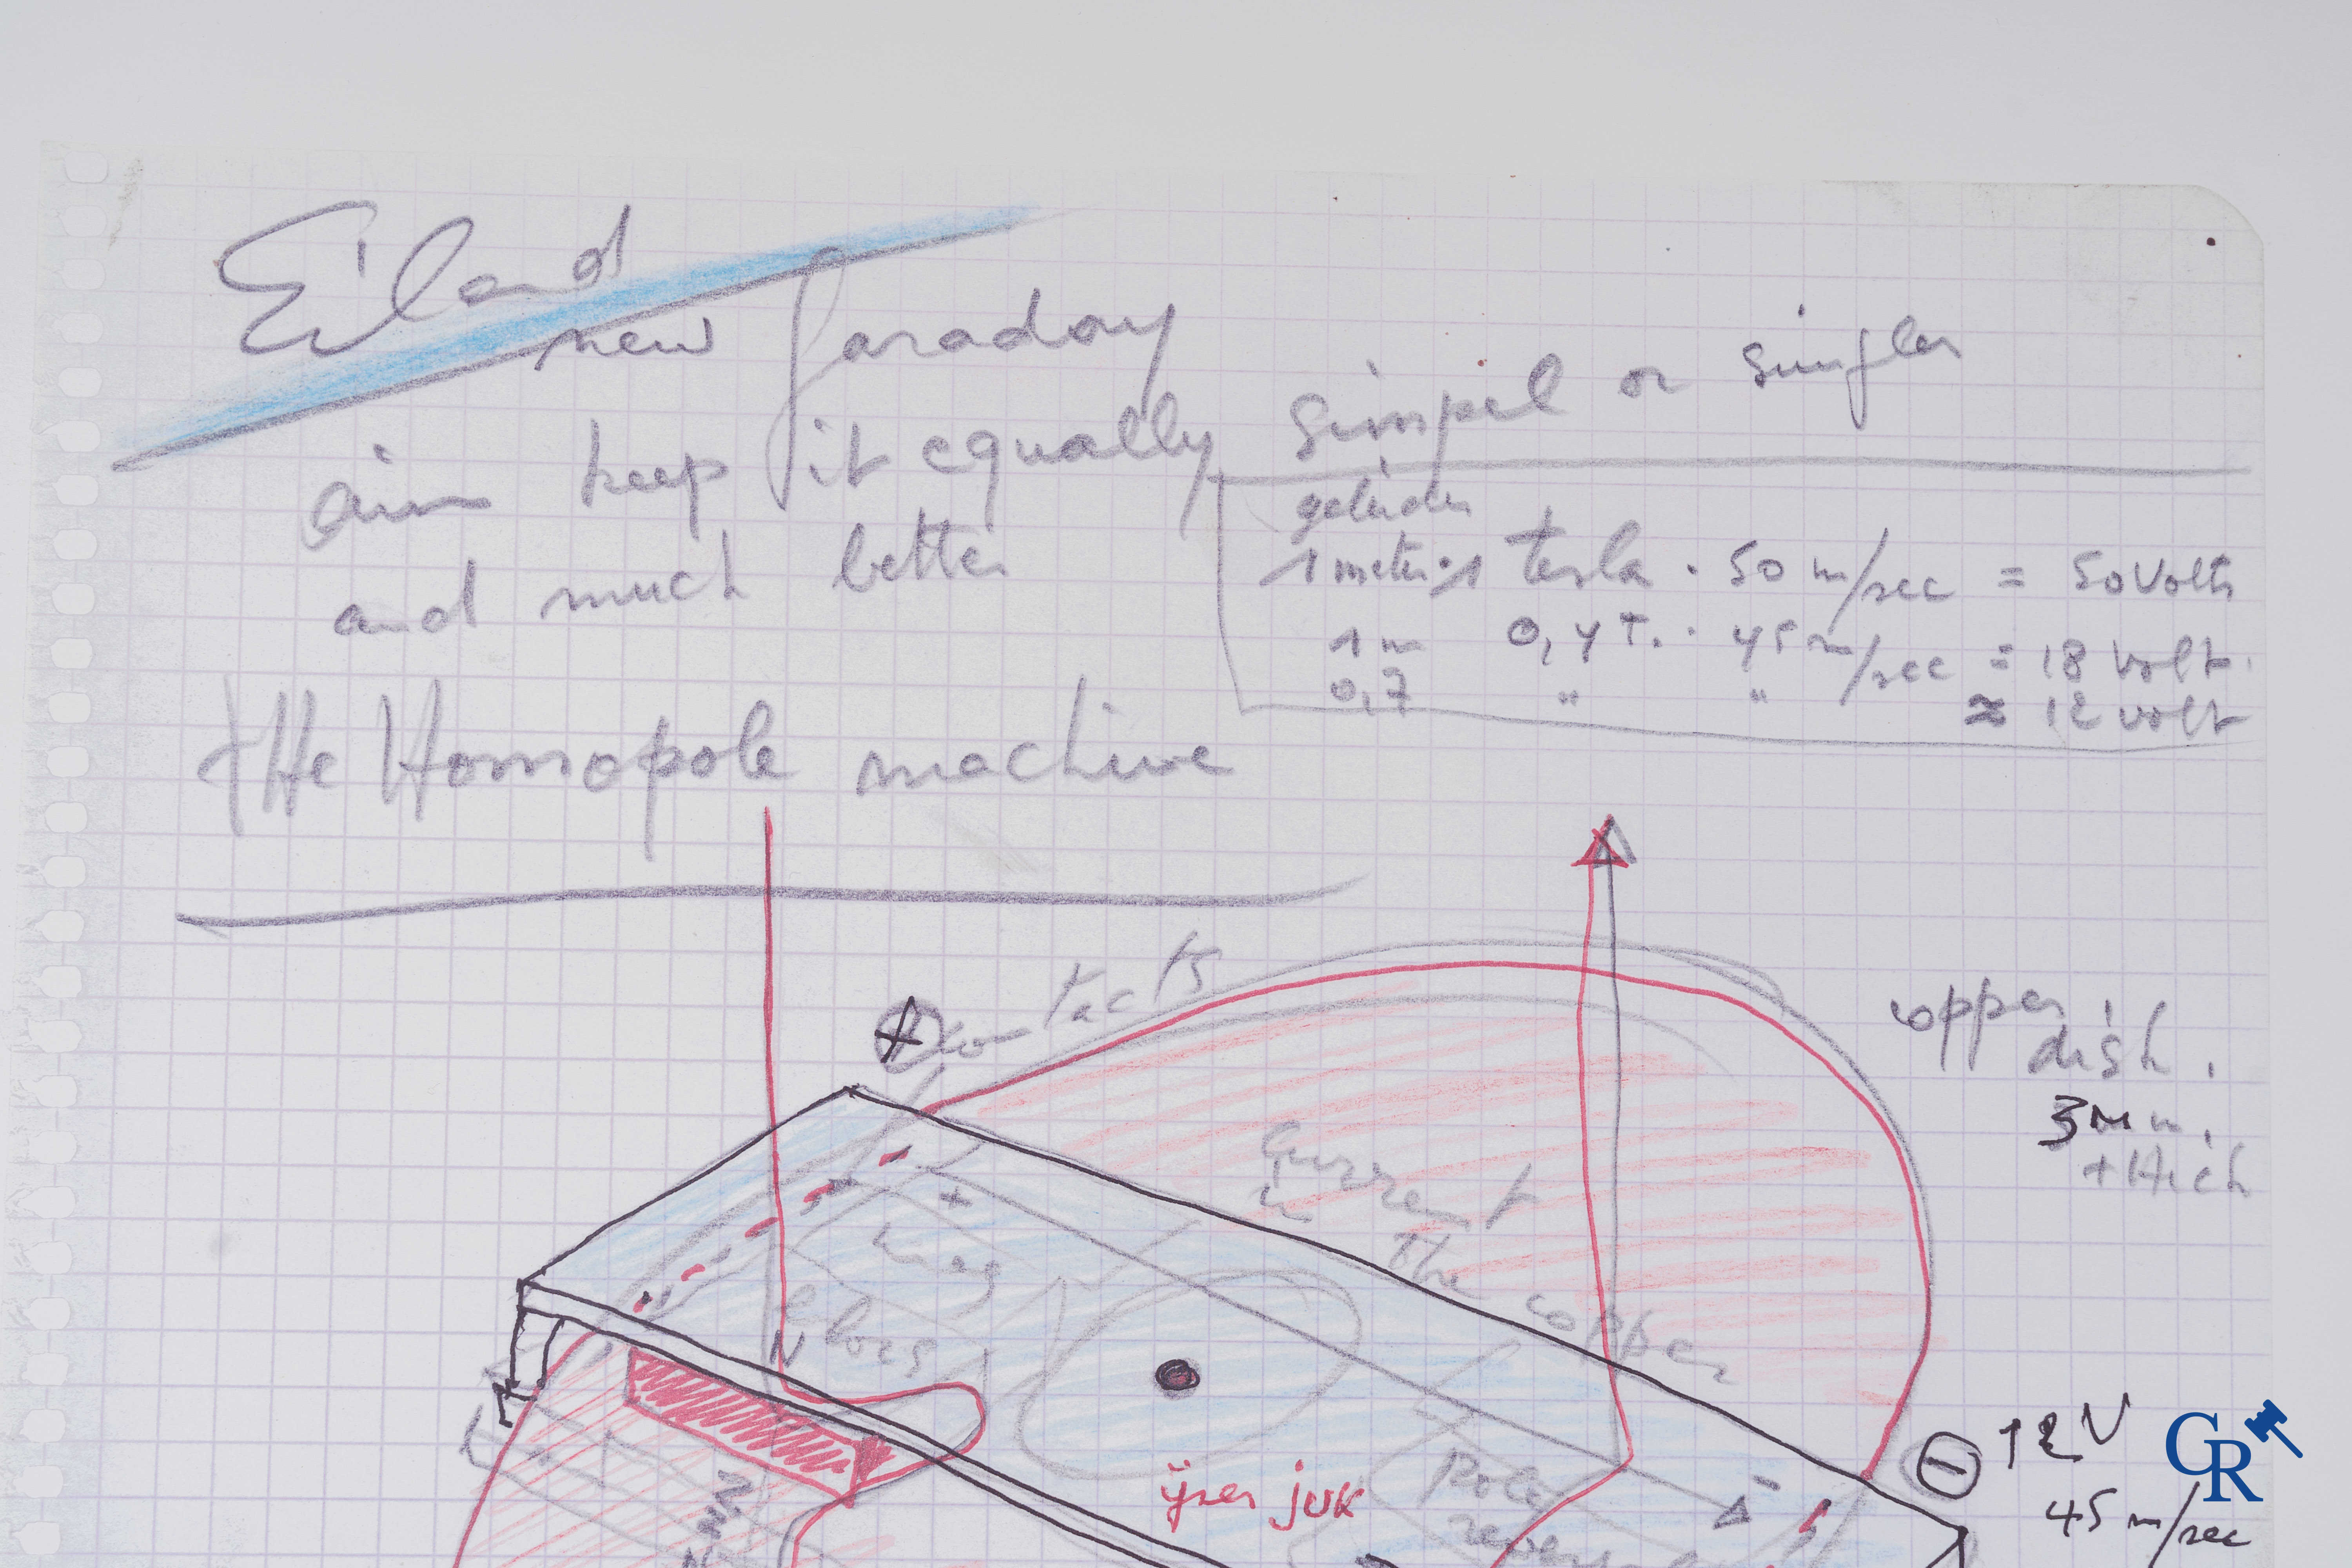 Eiland
new faraday
aim keep it equally simpel or simpler
and much better
geleider
1 meter · 1 tesla · 50 m/sec = 50 Volts
1 m 0,4 T. · 45 m/sec = 18 volt.
0,7 " " ≈ 12 volt
tHe Homopole machine
+ contacts
copper
dish.
3 mm.
tHick
Current
in
the
copper
+
mag
N
ijzer juk
Pole
-
⊖ 12 V
45 m/sec
CR